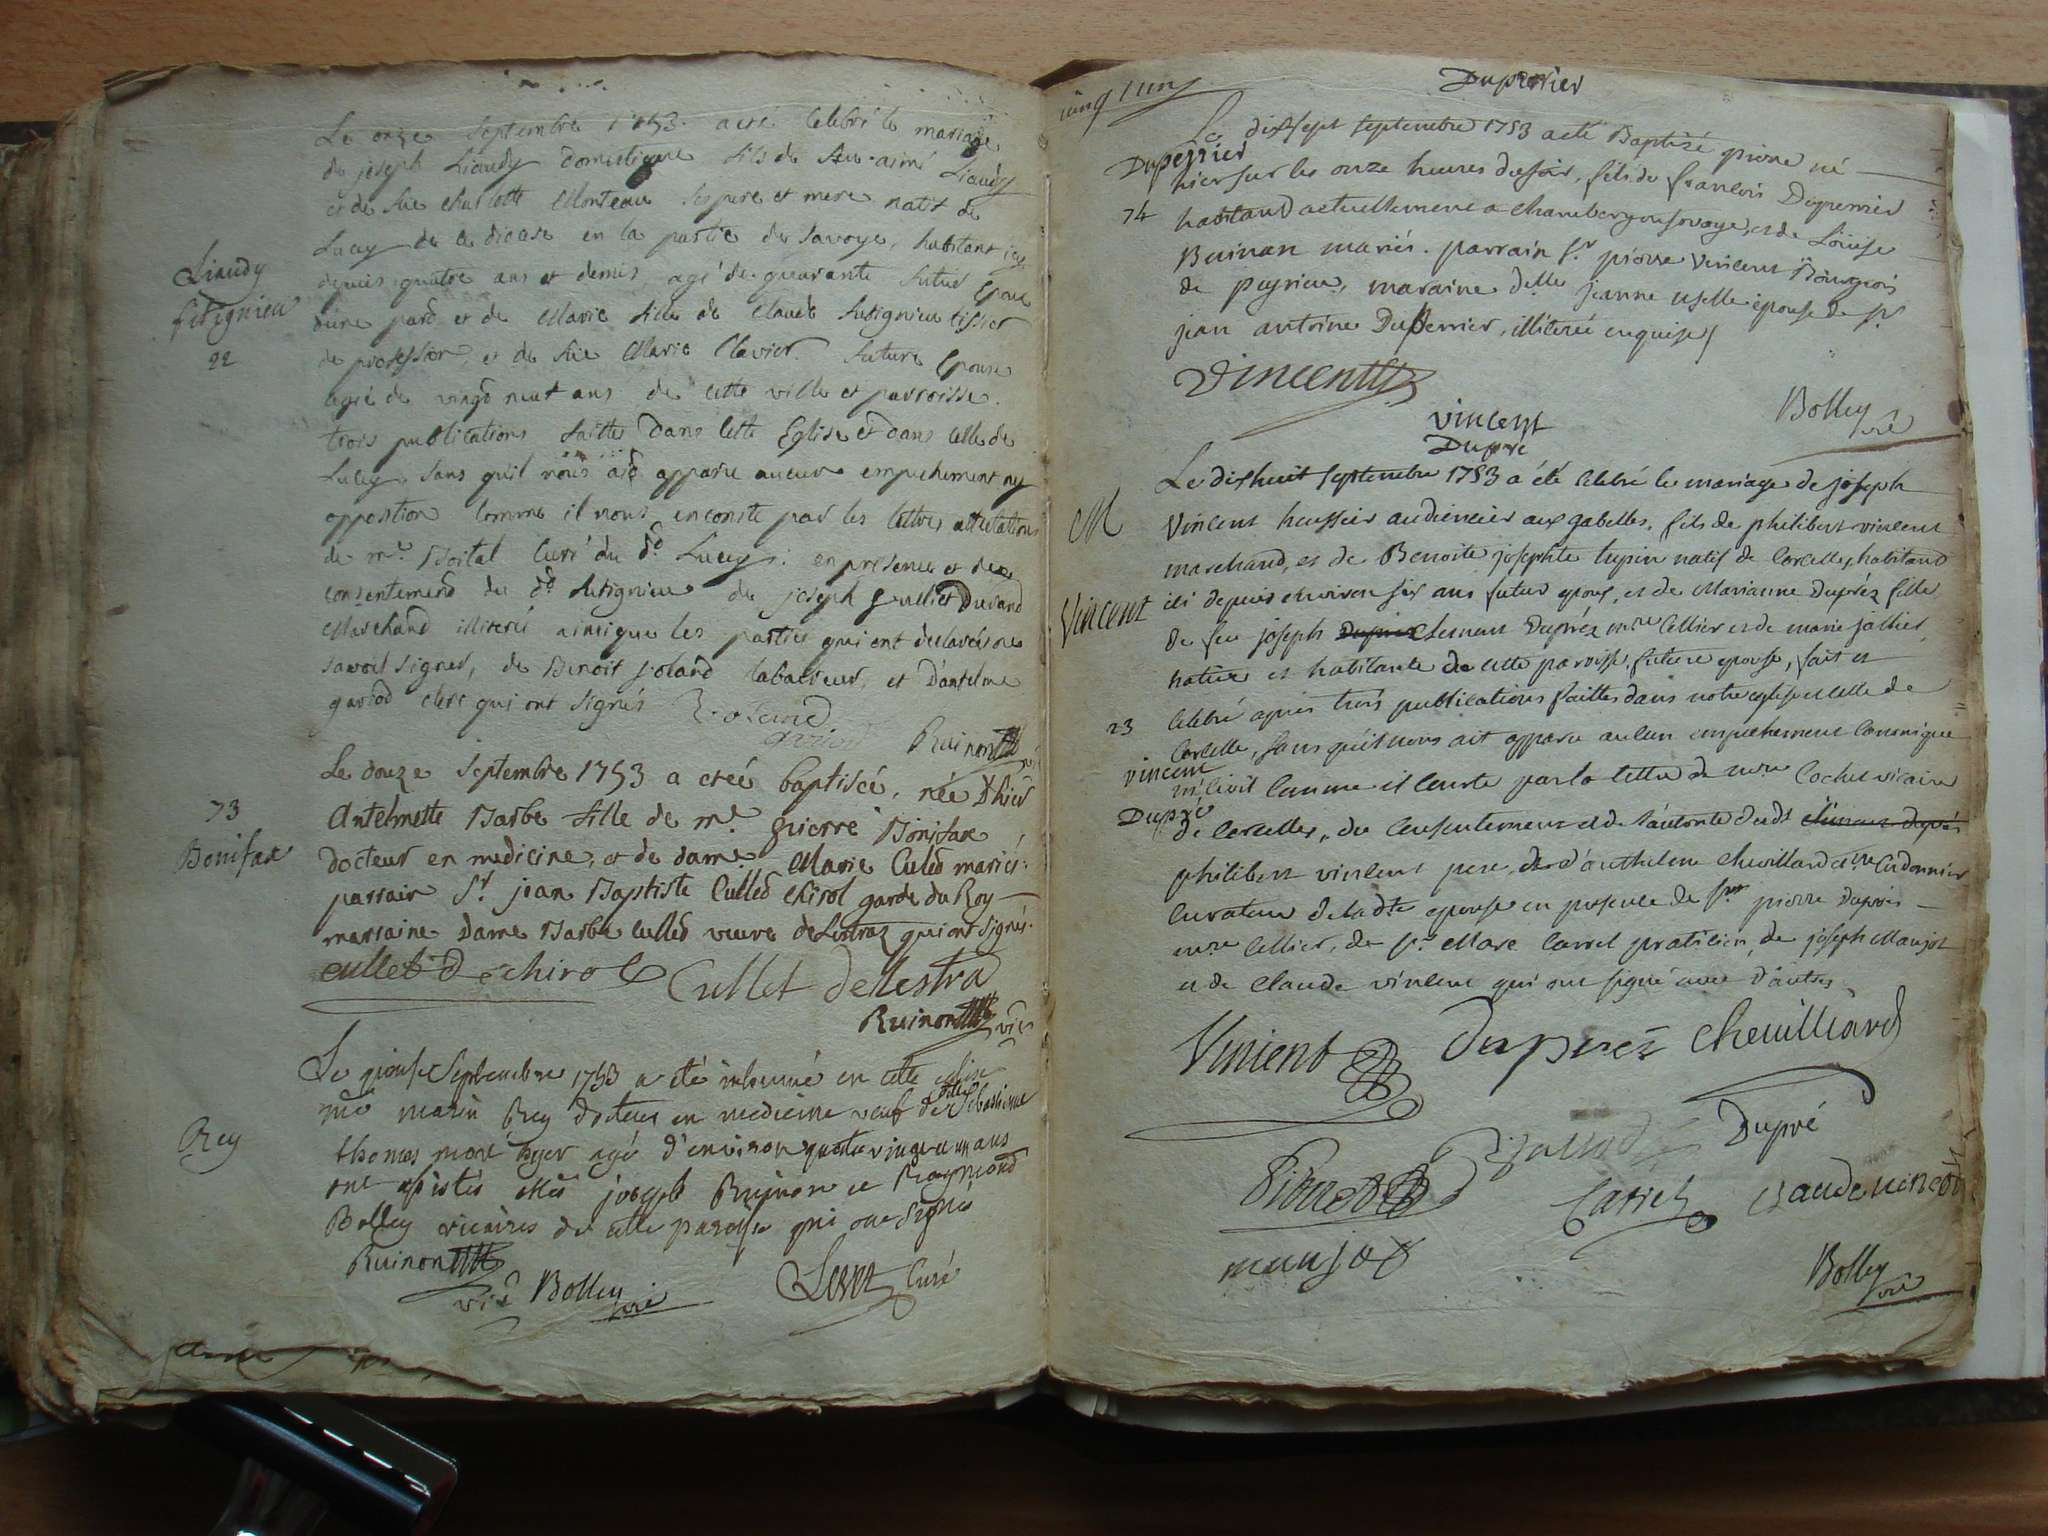 Le onze septembre 1753 a été celebré le mariage
de joseph Liaudy domestique fils de feu aimé Liaudy
et de feüe charlotte Monteau ses pere et mere natif de
Lucey de ce diocese en la partie de savoye, habitant icy
depuis quatre ans et demis, agé de quarante futur Epoux
d'une pard et de Marie fille de Claude futignieu tissier
de profession et de feüe Marie Clavier future Epouse
agée de vingd neuf ans de cette ville et parroisse.
trois publications faitte dans cette Eglise et dans celle de
Lucey, sans qu'il nous aid apparu aucun empechement ny
opposition comme il nous enconste par les lettres attestations
de mre Boital Curé du dd Lucey: en presence et de
consentemend du dd futignieu de joseph Durand
Marchand illiteré ainsi que les parties qui ont declaré ne
savoir signer, de Benoit joland laboureur, et D'antelme
gariod clerc qui ont signés
Ruinon
Liaudy
futignieu
22
Le douze septembre 1753 a eteé baptisée, née d'hier
Antelmette Barbe fille de me pierre Bonifax
docteur en medicine, et de dame Marie Culled mariés:
parrain Sr jean Baptiste Culled chirol garde du Roy
marraine dame Barbe culled veuve deLestraz qui ont signés.
73
Bonifax
cullet Dechirol Cullet deLestra
Ruinon vic
Le Septembre 1753 a été inhumé en cette eglise
me marin Rey docteur en medecine veuf de dlle sebastienne
thomas mort hyer agé d'environ quatre vingt un ans
ont assistés Mes joseph Ruinon et Raymond
Bolley vicaires de cette paroisse qui ont signés
Rey
Ruinon
vic Bolley vic Curé
cinq
Duperrier
Le dixsept septembre 1753 a eté Baptizé pierre né
hier sur les onze heures du soir, fils de françois Duperrier
habitand actuellement a chambery en savoye, et de Loüise
Buinan mariés. parrain sr pierre Vincent Bourgeois
de peyrieu, maraine delle jeanne uselle épouse de sr
jean antoine Duperrier, illiterée enquise /
Duperrier
74
Vincent
Bolley vic
vincent
Dupré
Le dixhuit septembre 1753 a été celebré le mariage de joseph
Vincent huissier audiencier aux gabelles, fils de philibert vincent
marchand, et de Benoite josephte tupin natif de Corcelles, habitand
ici depuis environ six ans futur epoux, et de Marianne Dupréz fille
de feu joseph Duprez Clemant Dupréz mtre Cellier et de marie jallier
native et habitante de cette paroisse, future epouse, fait et
celebré après trois publications faittes dans notre eglise et celle de
Corcelle, sans qu'il nous ait apparu aucun empechement Canonique
ni civil comme il conste par la lettre de mre Cochet vicaire
de Corcelles, du consentement et de l'autorité dudt Clemant Duprés
philibert vincent pere, et d'anthelme chevillard mre Cordonnier
curateur de ladte epouse en presence de sr pierre Duprés
mre Cellier, de sr Marc Carrel praticien, de joseph Maujot
et de Claude vincent qui ont signé avec d'autres
M
Vincent
23
vincent
Dupré
Vincent Duprez Chevilliard
Dupré
Carrel claude vincent
maujot
Bolley vic